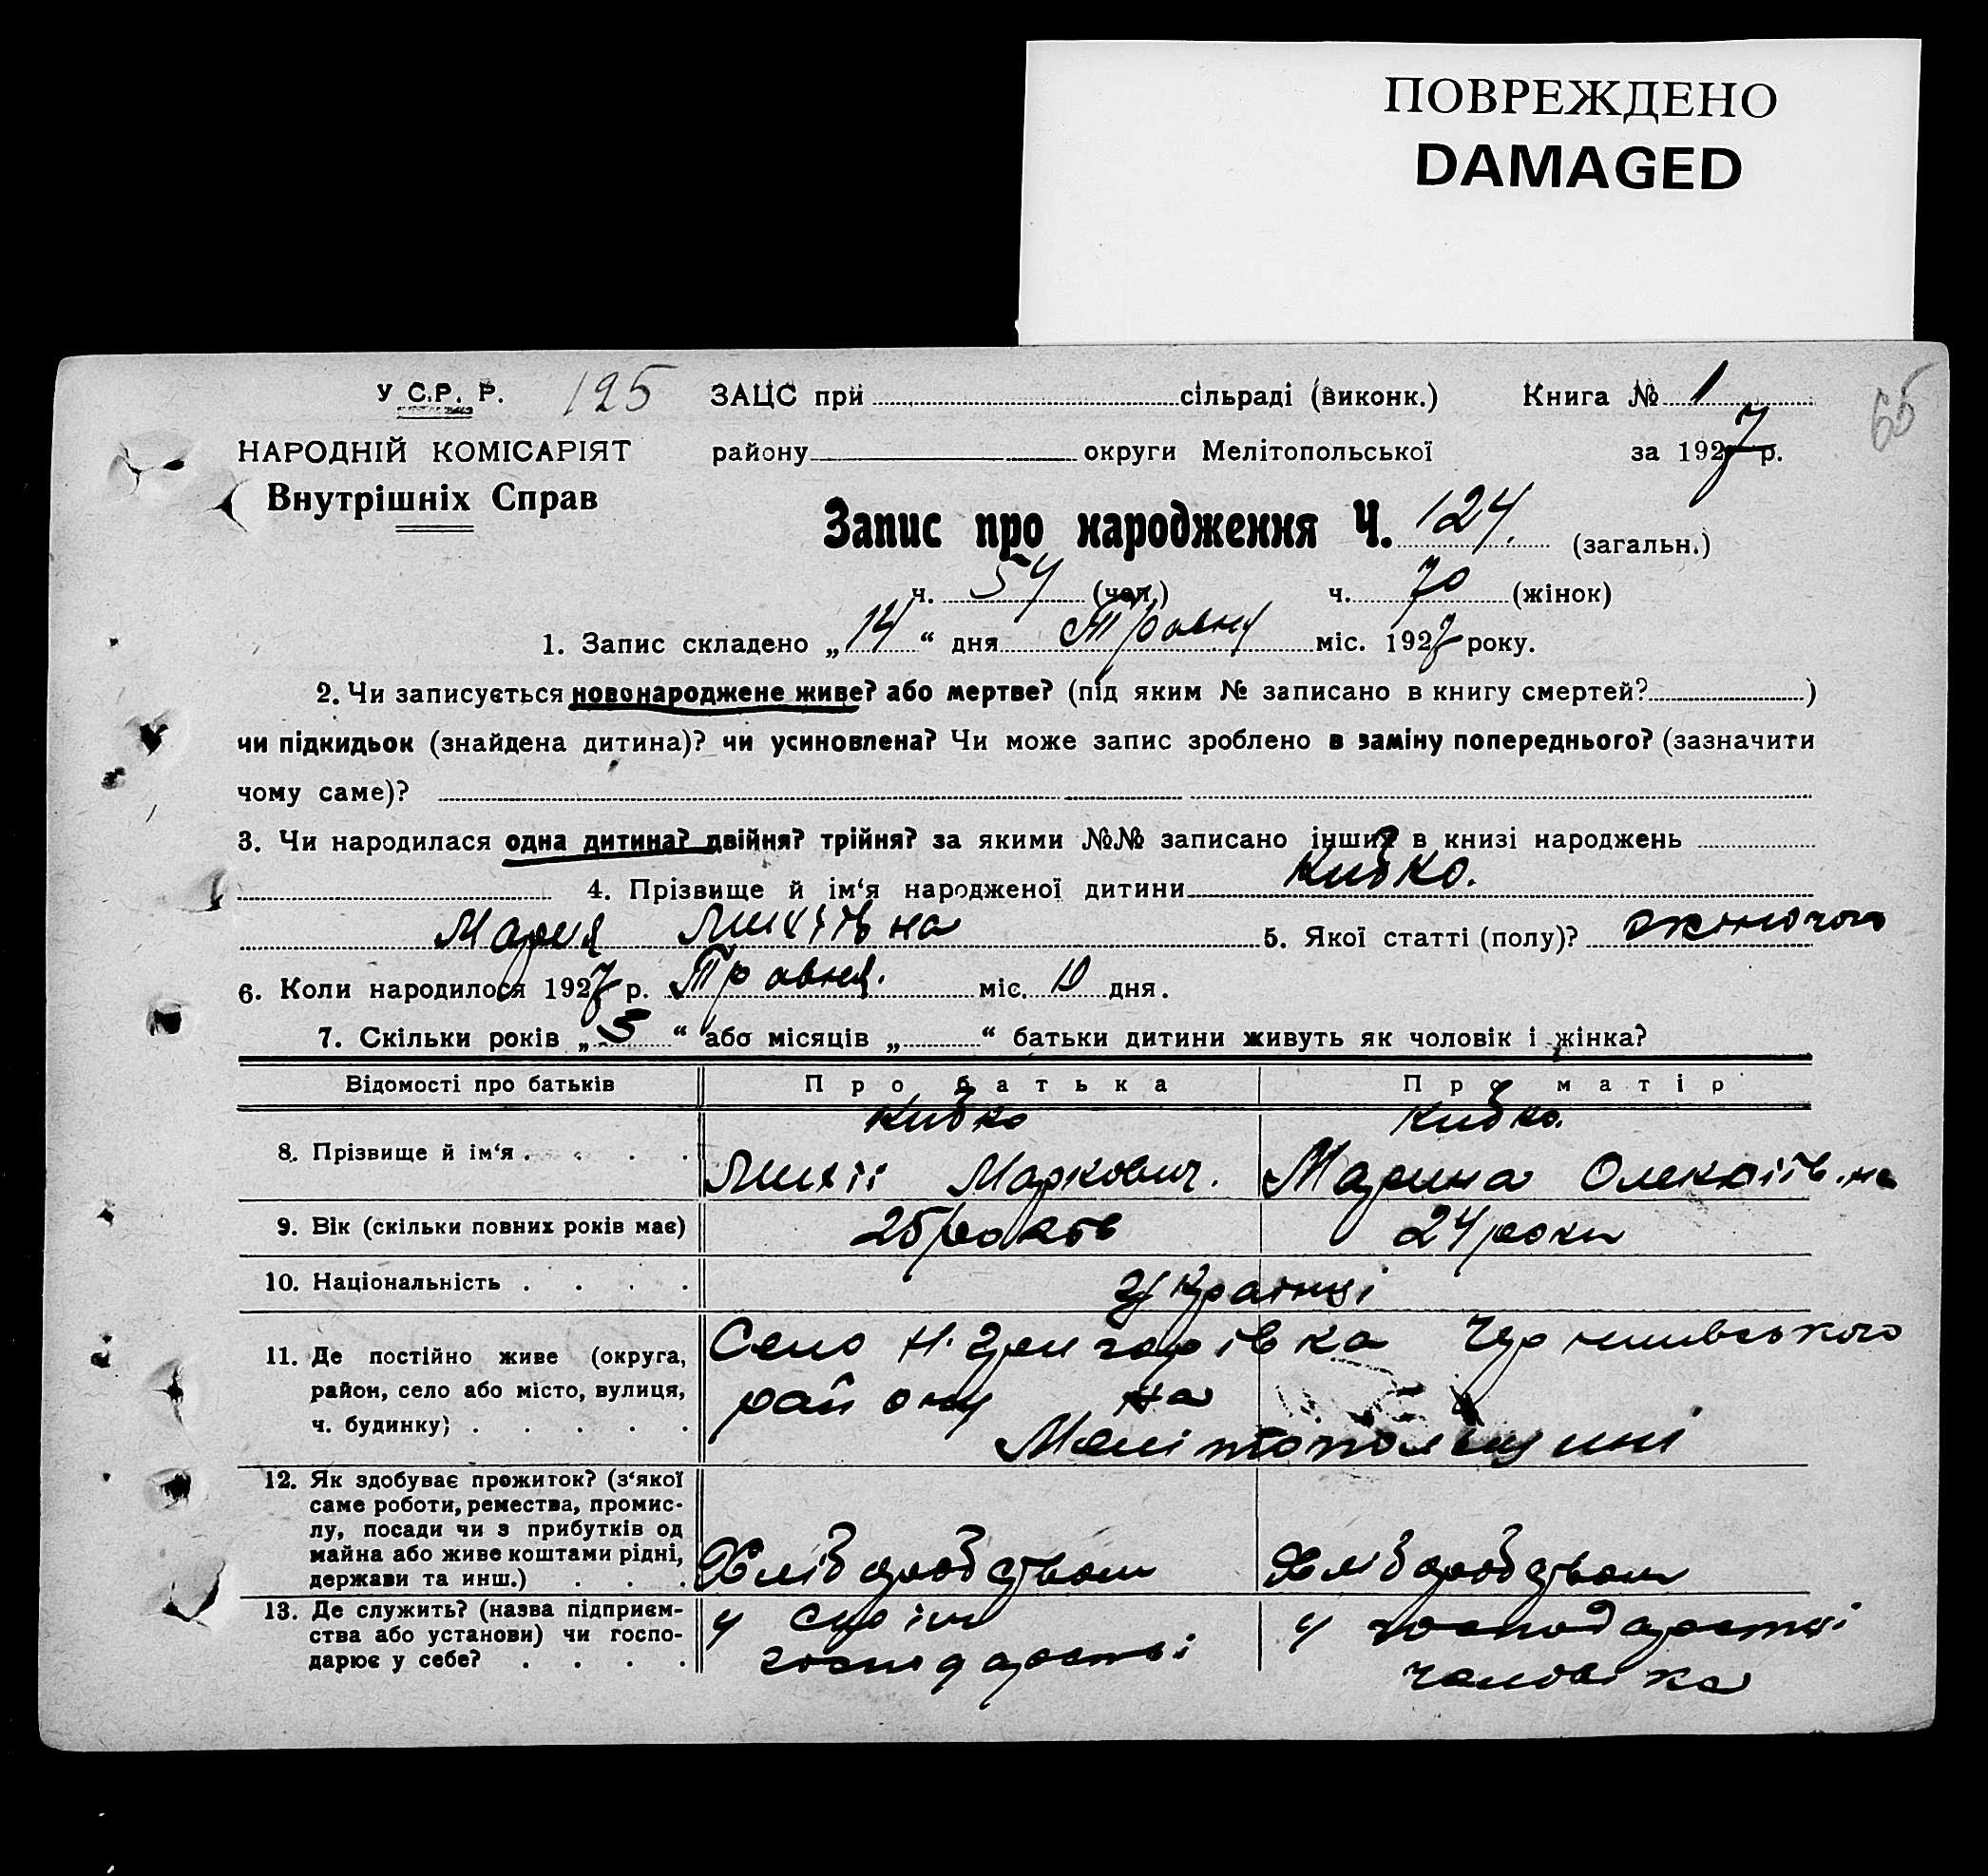 ПОВРЕЖДЕНО
DAMAGED
У С.Р. Р. 125 ЗАЦС при сільраді (виконк.) Книга № 1 65
НАРОДНІЙ КОМІСАРІЯТ району округи Мелітопольської за 1927 р.
Внутрішніх Справ
Запис про народження Ч. 124. (загальн.)
ч. 54 (чол.) ч. 70 (жінок)
1. Запис складено „14“ дня Травня міс. 1927 року.
2. Чи записується новонароджене живе? або мертве? (під яким № записано в книгу смертей? )
чи підкидьок (знайдена дитина)? чи усиновлена? Чи може запис зроблено в заміну попереднього? (зазначити
чому саме)?
3. Чи народилася одна дитина? двійня? трійня? за якими №№ записано інших в книзі народжень
4. Прізвище й ім‘я народженої дитини Кибко.
Мария 5. Якої статті (полу)? жіночої
6. Коли народилося 1927 р. Травня. міс. 10 дня.
7. Скільки років „5“ або місяців „ “ батьки дитини живуть як чоловік і жінка?
Відомості про батьків Про батька Про матір
Кибко Кибко.
8. Прізвище й ім‘я . . . . Маркович. Марина Олексіївна
9. Вік (скільки повних років має) 25 років 24 роки
10. Національність . . . . Українці
11. Де постійно живе (округа, Село Н. Григорівка
район, село або місто, вулиця, району на
ч. будинку) . . . . . Мелітопольщині
12. Як здобуває прожиток? (з‘якої
саме роботи, ремества, промис-
лу, посади чи з прибутків од
майна або живе коштами рідні, Хліборобством Хліборобством
держави та инш.) . . .
13. Де служить? (назва підприєм- у своїм у господарстві
ства або установи) чи госпо- господарстві чоловіка
дарює у себе? . . . .